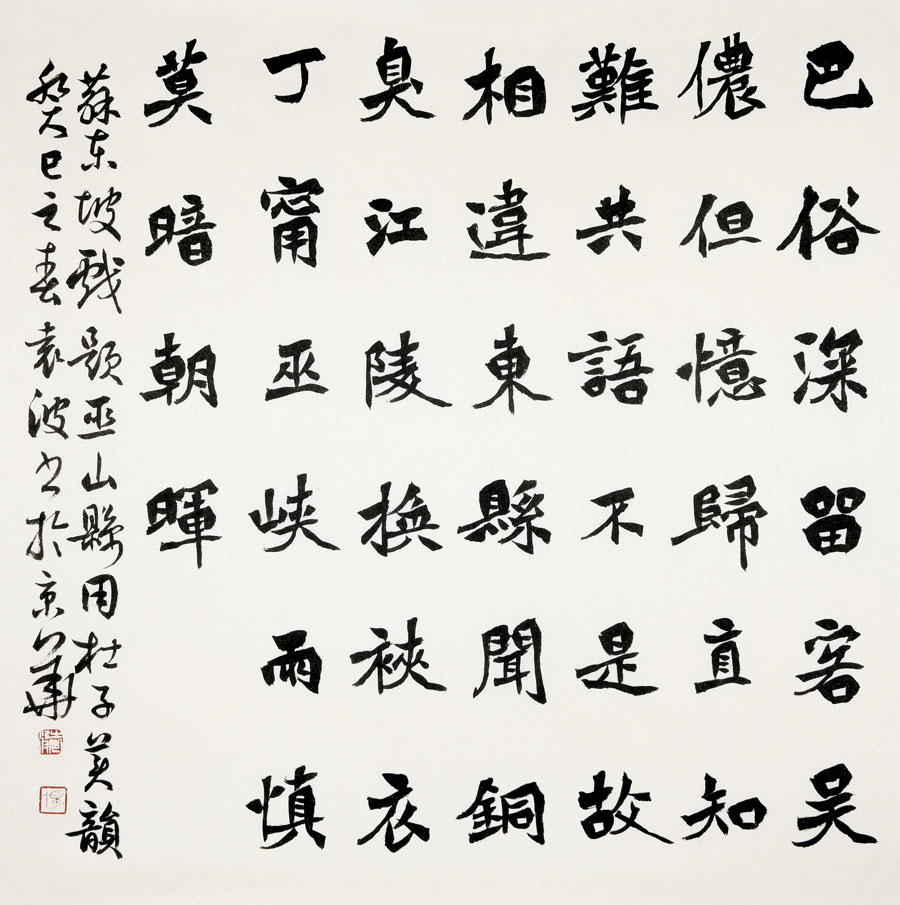 巴俗深留客吴
儂但憶歸直知
難共語不是故
相違東縣聞銅
臭江陵換裌衣
丁甯巫峽雨慎
莫暗朝暉
蘇東坡戲題巫山縣用杜子美韻
癸巳之春袁波书於京華